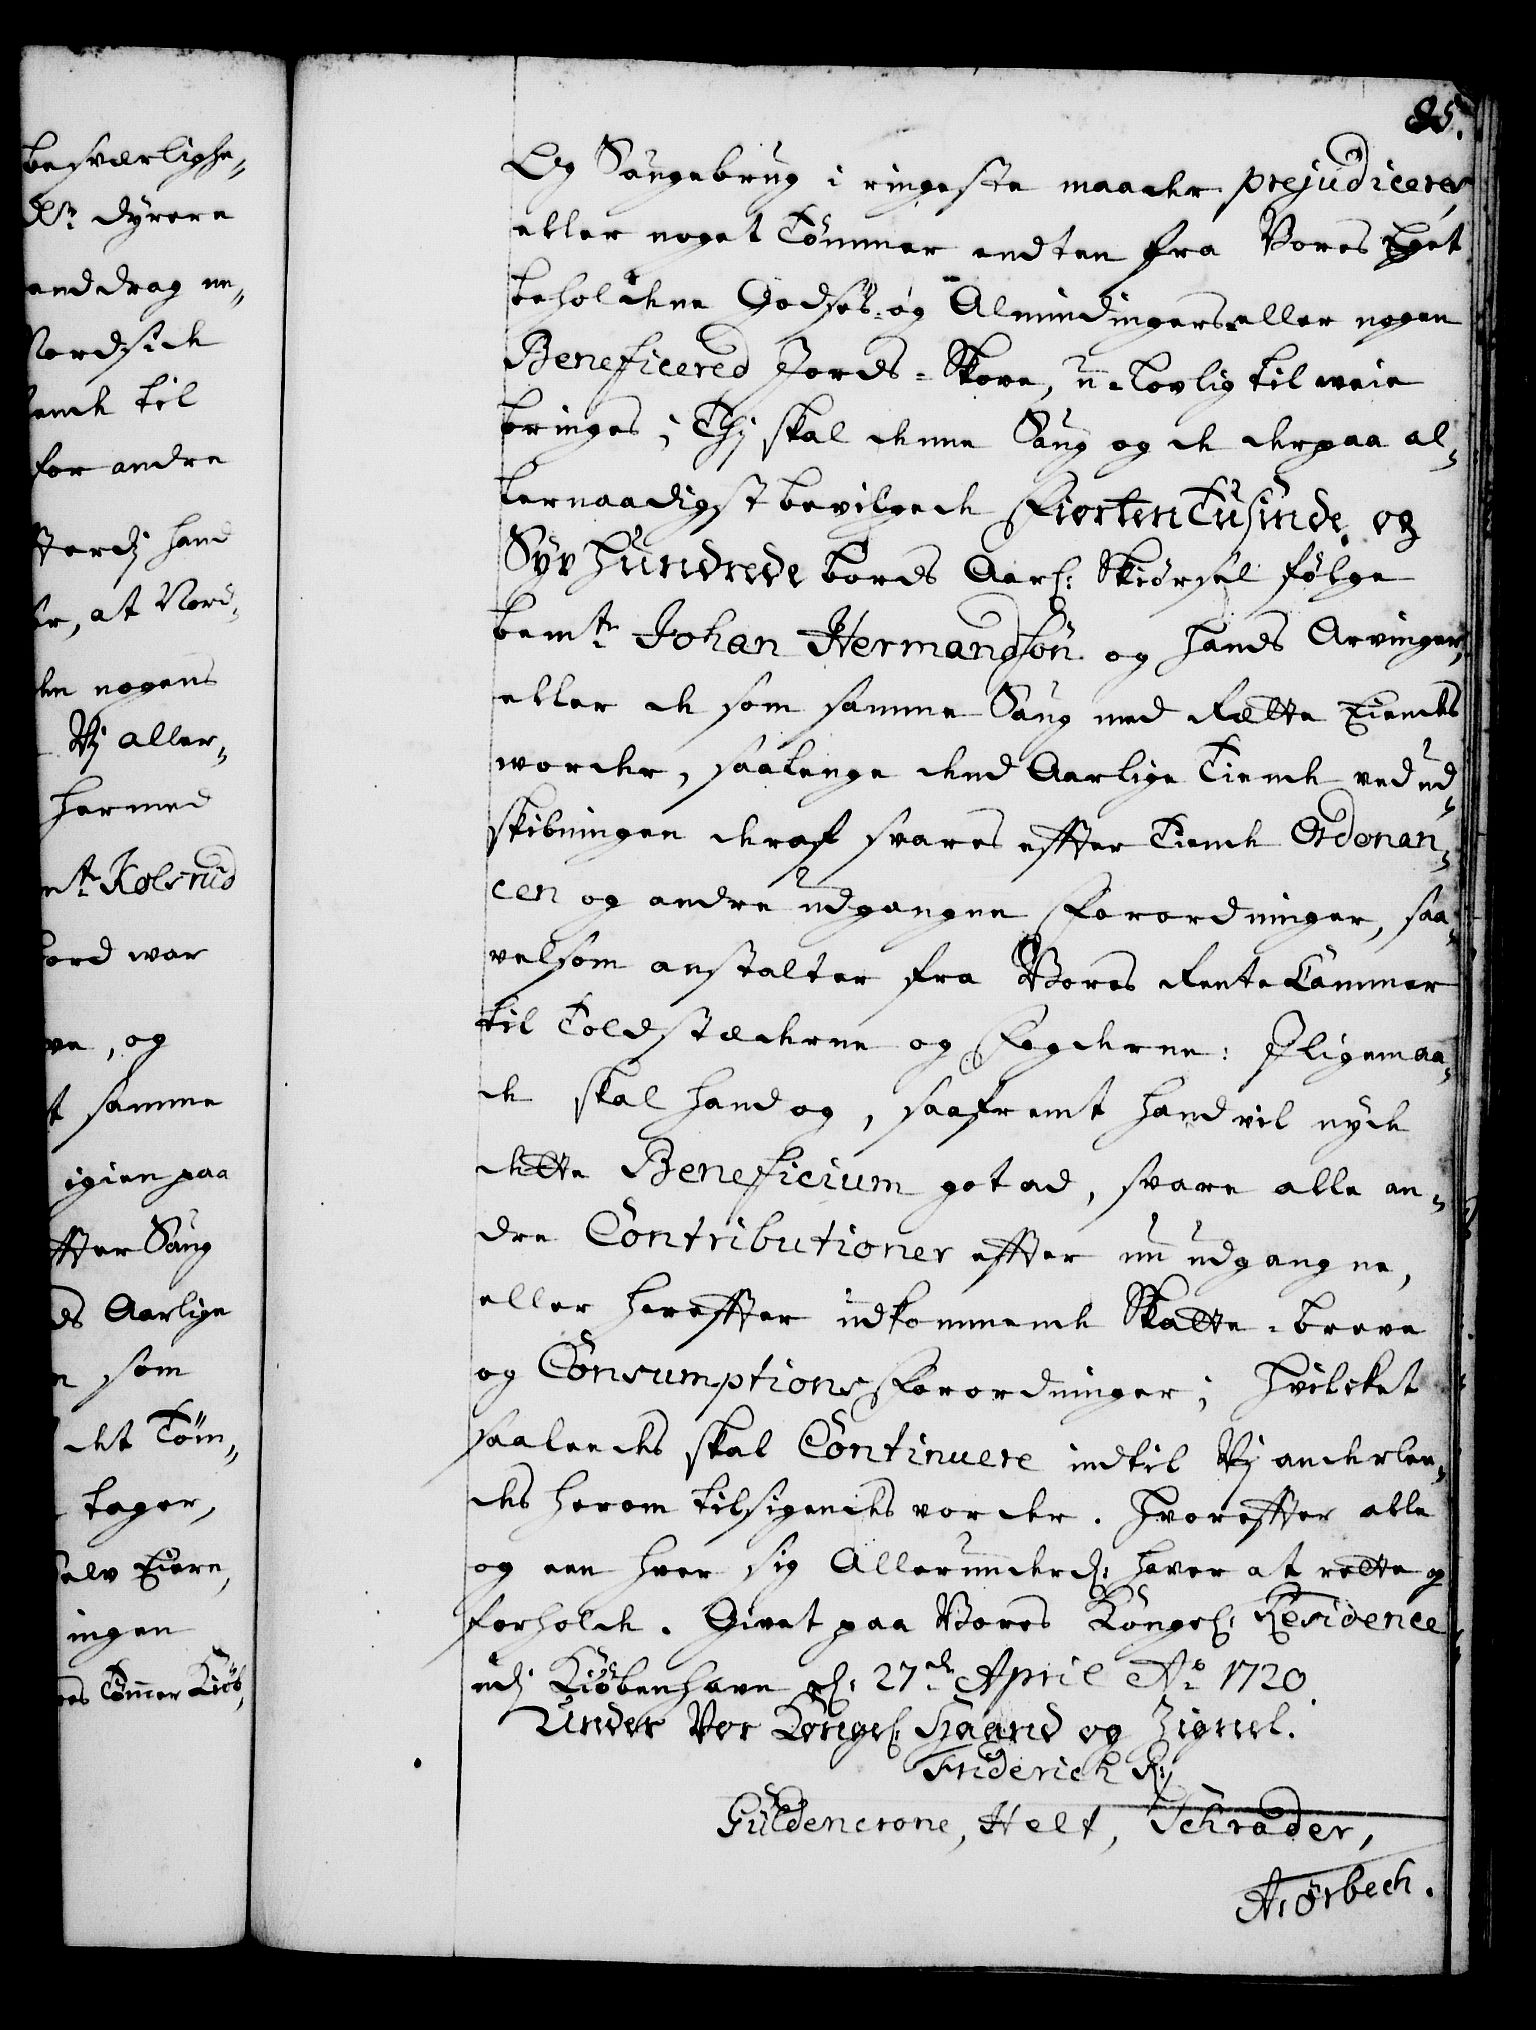 besværlighe-
dyrere
anddrag ne-
Nordside
ende til
for andre
Ferdj hand
er, at Nord-
den nogens
Wj aller-
hermed
mte Kolsrud
bord war
ve, og
t samme
igien paa
fter Saug
ds Aarlige
n som
det Töm-
tager,
selv Eiere,
ingen
res Tömmer Kiöb,
85.
Og Saugebrug i ringeste maader prejudiceres
eller noget Tömmer endten fra Vores Eget
beholdene Godses og Almindingers eller nogen
Beneficered Jords-Skove, u-lovlig til weie
bringes; Thj skal denne Saug og de derpaa al-
lernaadigst bevilgede Fiorten Tusinde og
Syv Hundrede bords Aarl: Skiörsel følge
bemte Johan Hermandsön og hands Arvinger,
eller de som samme Saug med Rette Eiendes
worder, saalenge dend Aarlige Tiende ved ud-
skibningen deraf svares effter Tiende Ordonan-
cen og andre udgangne Forordninger, saa-
velsom anstalter fra Vores Rente Cammer
til Toldstæderne og Fogderne: Jligemaa-
de skal hand og, saafremt hand vil nyde
dette Beneficium got ad, svare alle an-
dre Contributioner effter nu udgangne,
eller hereffter udkommende Skatte-breve
og Consumptions Forordninger; Hvilcket
saaledes skal Continuere indtil Wj anderlee-
des herom tilsigendes vorder. Hvoreffter alle
og een hver sig Allerunderd: haver at rette og
forholde. Givet paa Vores Kongel: Residence
udj Kiøbenhavn d: 27de April Ao 1720
Under Vor Kongel: Haand og Zignel.
Friderich R:
Güldencrone, Helt, Schrader,
A: Ørbech.